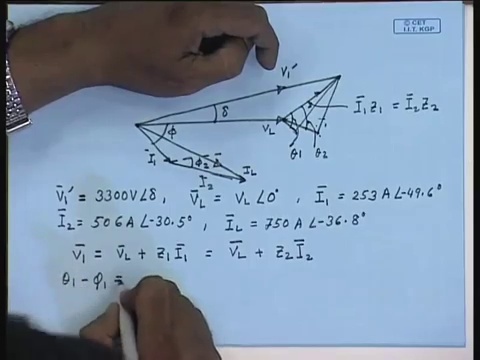 © CET
I.I.T. KGP
V₁'
δ
V_L
Ī₁z₁ = Ī₂z₂
φ
Ī₁
φ₂
Ī₂
I_L
θ₁ θ₂
V̄₁' = 3300V∠δ, V̄_L = V_L∠0°, Ī₁ = 253 A∠-49.6°
Ī₂ = 506 A∠-30.5°, Ī_L = 750 A∠-36.8°
V̄₁ = V̄_L + z₁Ī₁ = V̄_L + z₂Ī₂
θ₁ - φ₁ =